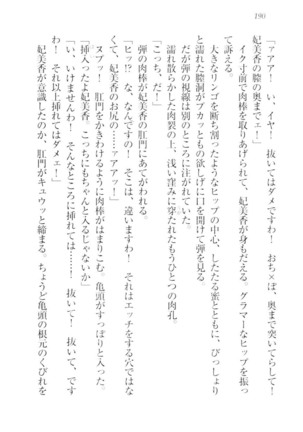 190
「ァアア！　い、イヤ！　抜いてはダメですわ！　おち×ぽ、奥まで突いてらして！
妃美香の膣の奥までェ！」
イク寸前で肉棒を取りあげられて、妃美香が身もだえる。グラマーなヒップを振っ
て訴える。
大きなリンゴを断ち割ったようなヒップの中心、したたる蜜とともに、びっしょり
と濡れた膣洞がプカッともの欲しげに口を開けて弾を見る。
だが弾の視線は別のところに注がれていた。
濡れ散らかした肉裂の上、浅い窪みに穿たれたもうひとつの肉孔。
「こっち、だ！」
弾の肉棒が妃美香の肛門にあてがわれる。
「ヒッ!?　な、なんですの！　そこは、違いますわ！　それはエッチをする穴ではな
くて、妃美香のお尻の……ァアッ！」
ヌブッ！　肛門をかきわけるように肉棒がはまりこむ。亀頭がすっぽりと入った。
「挿入ったよ妃美香　こっちにもちゃんと入るじゃないか」
「い、いけませんわ！　そんなところに挿れては……！　抜いて！　抜いて、ですわ
わ！　それ以上挿れてはダメェ！」
妃美香が意識したのか、肛門がキュウッと締まる。ちょうど亀頭の根元のくびれを